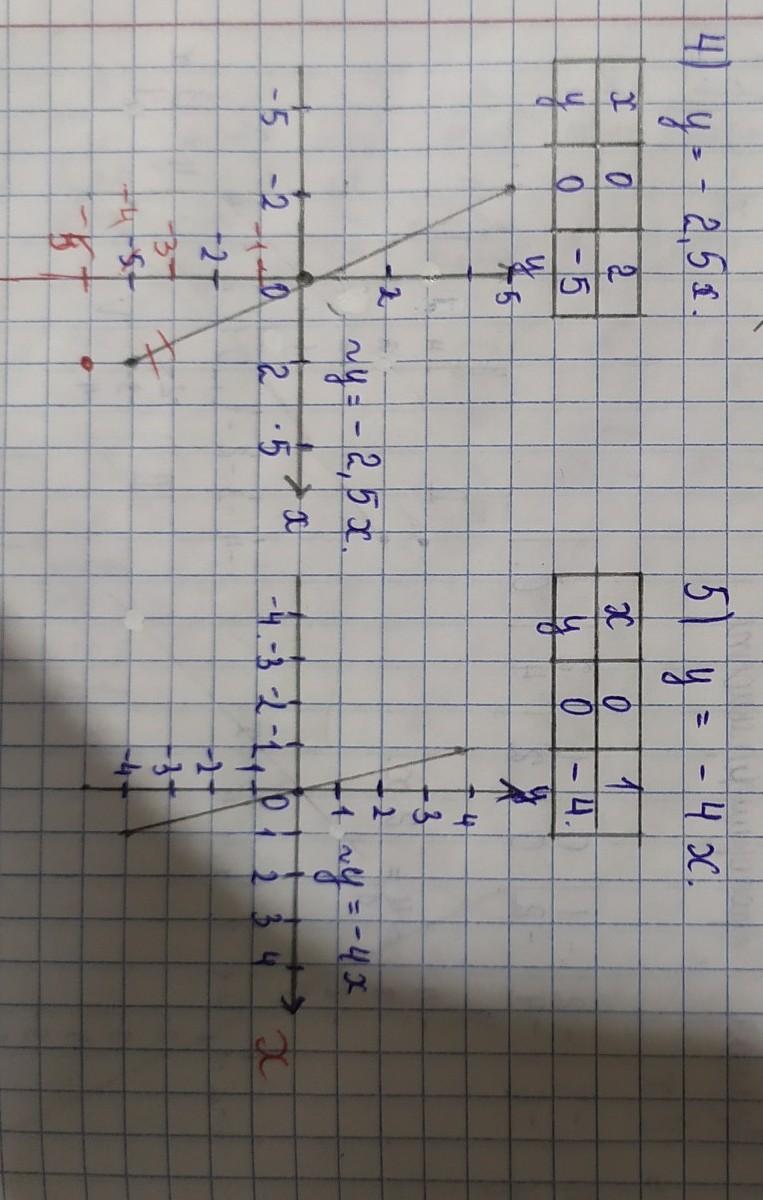 4) y = - 2,5x.
x 0 2
y 0 -5
y
5
2
~y = - 2,5x.
-5 -2 0 2 5 x
-1
-2
-3
-4 -5
-5
5) y = - 4x.
x 0 1
y 0 -4.
y
4
3
2
1
~y = -4x
-4 -3 -2 -1 0 1 2 3 4 x
-1
-2
-3
-4